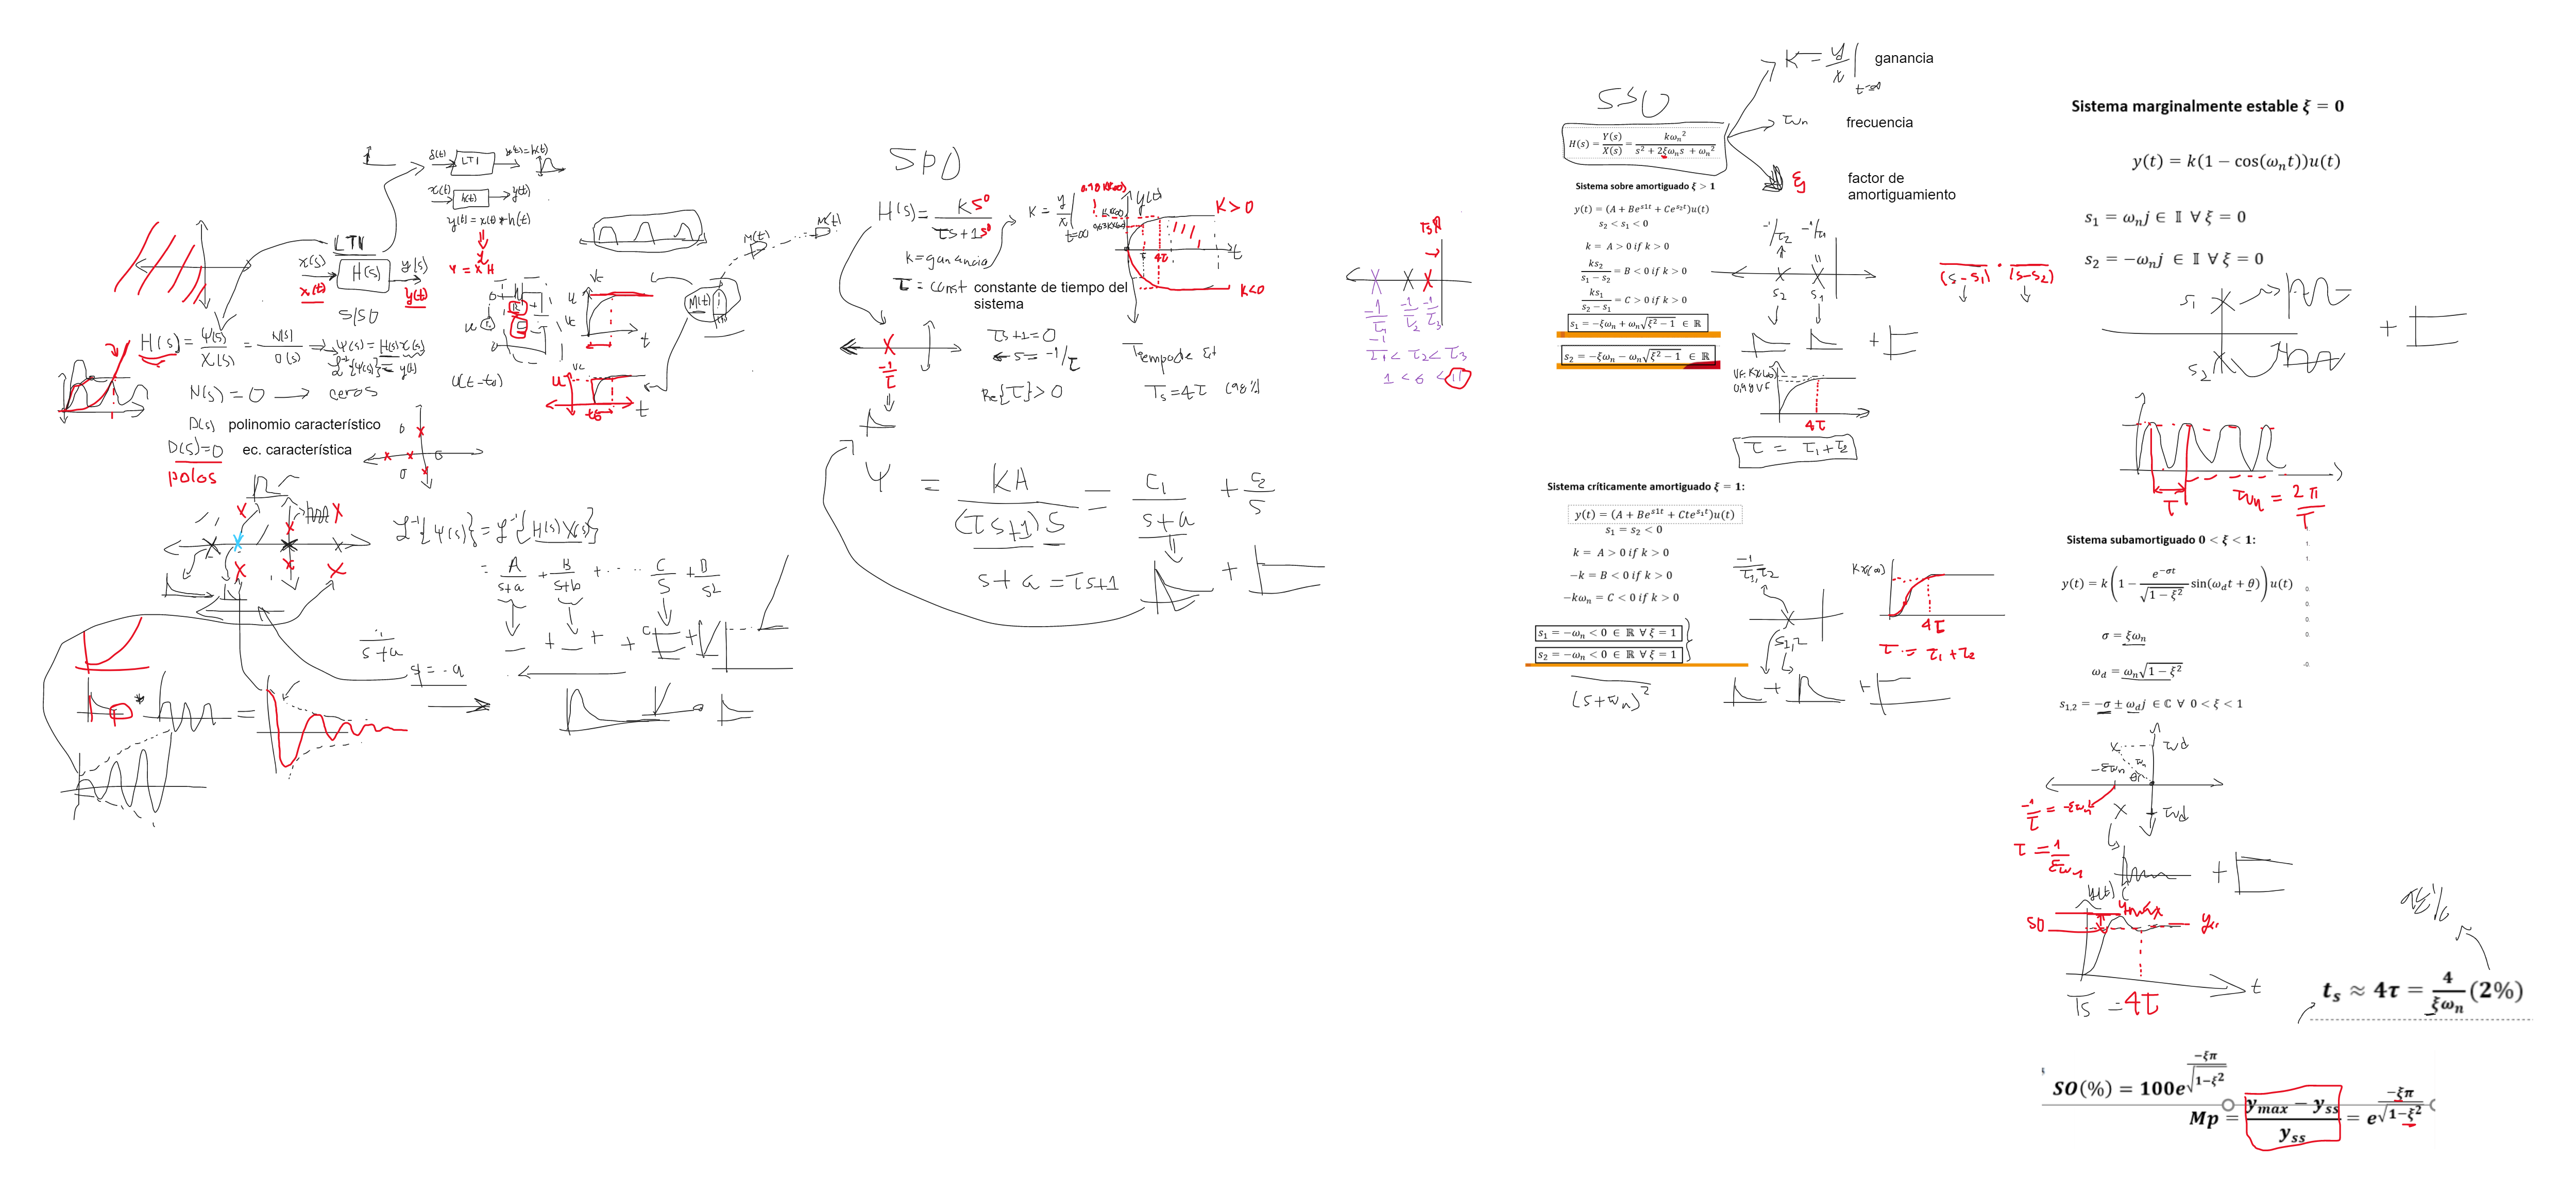 δ(t) → LTI → y(t)=h(t)
x(t) → h(t) → y(t)
y(t) = x(t) * h(t)
Y = X H
LTI
x(s) H(s) y(s)
x(t) y(t)
SISO
H(s) = Y(s)/X(s) = N(s)/D(s) → Y(s) = H(s) X(s)
ℒ⁻¹{Y(s)} = y(t)
N(s) = 0 → ceros
D(s) polinomio característico
D(s)=0 ec. característica
polos
U(t-t₀)
M(t)
M(t)
M(t)
Vc
t
ℒ⁻¹{Y(s)} = ℒ⁻¹{H(s)X(s)}
= A/(s+a) + B/(s+b) + ... C/S + D/s²
1/(s+a)
s = -a
SPO
H(s) = K s⁰/(τs+1 s⁰)
K = y/x | t=∞
K=ganancia
τ = const constante de tiempo del
sistema
y(t)
K>0
K<0
4τ
t
-1/τ
τs+1=0
s = -1/τ
Re{τ}>0
Tiempo de Et
Ts=4τ (98%)
Y = KA/((τs+1) S) = C₁/(s+a) + C₂/S
s+a = τs+1
-1/τ₁ -1/τ₂ -1/τ₃
τ₁ < τ₂ < τ₃
1 < 6 < 11
SSO
H(s) = Y(s)/X(s) = kωn²/(s² + 2ξωns + ωn²)
K = y/x | t=∞ ganancia
ωn frecuencia
ξ factor de
amortiguamiento
Sistema sobre amortiguado ξ > 1
y(t) = (A + Be^{s1t} + Ce^{s2t})u(t)
s₂ < s₁ < 0
k = A > 0 if k > 0
ks₂/(s₁ − s₂) = B < 0 if k > 0
ks₁/(s₂ − s₁) = C > 0 if k > 0
s₁ = −ξωn + ωn√(ξ² − 1) ∈ ℝ
s₂ = −ξωn − ωn√(ξ² − 1) ∈ ℝ
-1/τ₂ -1/τ₁
s₂ s₁
(s-s₁) · (s-s₂)
4τ
τ = τ₁+τ₂
Sistema críticamente amortiguado ξ = 1:
y(t) = (A + Be^{s1t} + Cte^{s1t})u(t)
s₁ = s₂ < 0
k = A > 0 if k > 0
−k = B < 0 if k > 0
−kωn = C < 0 if k > 0
s₁ = −ωn < 0 ∈ ℝ ∀ ξ = 1
s₂ = −ωn < 0 ∈ ℝ ∀ ξ = 1
(s+ωn)²
-1/τ₁,τ₂
s₁,₂
Kx(∞)
4τ
τ = τ₁+τ₂
Sistema marginalmente estable ξ = 0
y(t) = k(1 − cos(ωnt))u(t)
s₁ = ωnj ∈ 𝕀 ∀ ξ = 0
s₂ = −ωnj ∈ 𝕀 ∀ ξ = 0
s₁
s₂
T ωn = 2π/T
Sistema subamortiguado 0 < ξ < 1:
y(t) = k(1 − e^{−σt}/√(1 − ξ²) sin(ωdt + θ))u(t)
σ = ξωn
ωd = ωn√(1 − ξ²)
s₁,₂ = −σ ± ωdj ∈ ℂ ∀ 0 < ξ < 1
ωd
-ξωn
ωn
θ
-1/τ = -ξωn
-ωd
τ = 1/ξωn
y(t)
ymáx
SO
t
Ts = 4τ
ts ≈ 4τ = 4/ξωn (2%)
SO(%) = 100e^{−ξπ/√(1−ξ²)}
Mp = (ymax − yss)/yss = e^{−ξπ/√(1−ξ²)}